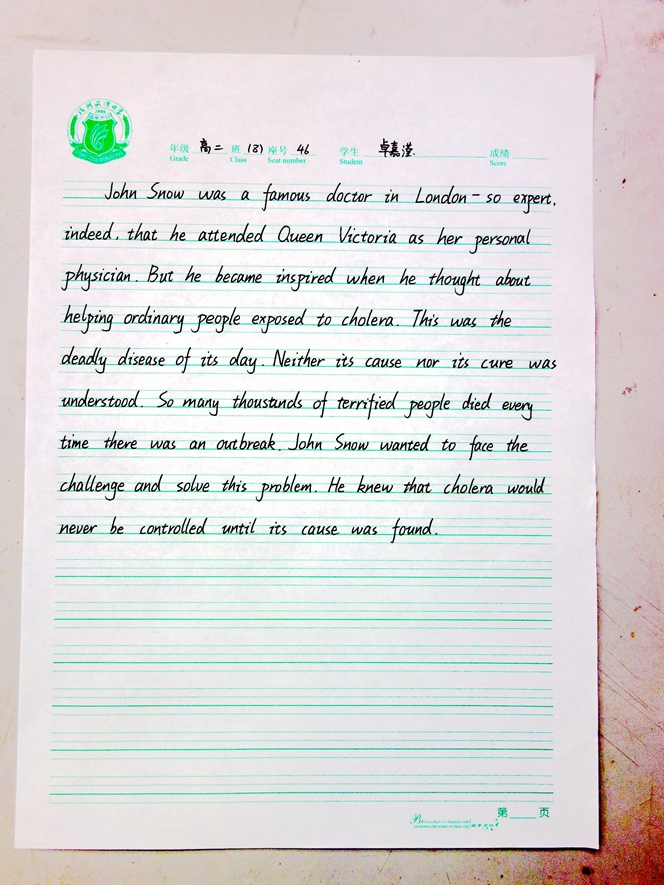 年级 高二 班 (8) 座号 46 学生 卓嘉滢. 成绩
Grade Class Seat number Student Score
John Snow was a famous doctor in London - so expert,
indeed, that he attended Queen Victoria as her personal
physician. But he became inspired when he thought about
helping ordinary people exposed to cholera. This was the
deadly disease of its day. Neither its cause nor its cure was
understood. So many thoustands of terrified people died every
time there was an outbreak. John Snow wanted to face the
challenge and solve this problem. He knew that cholera would
never be controlled until its cause was found.
第 页